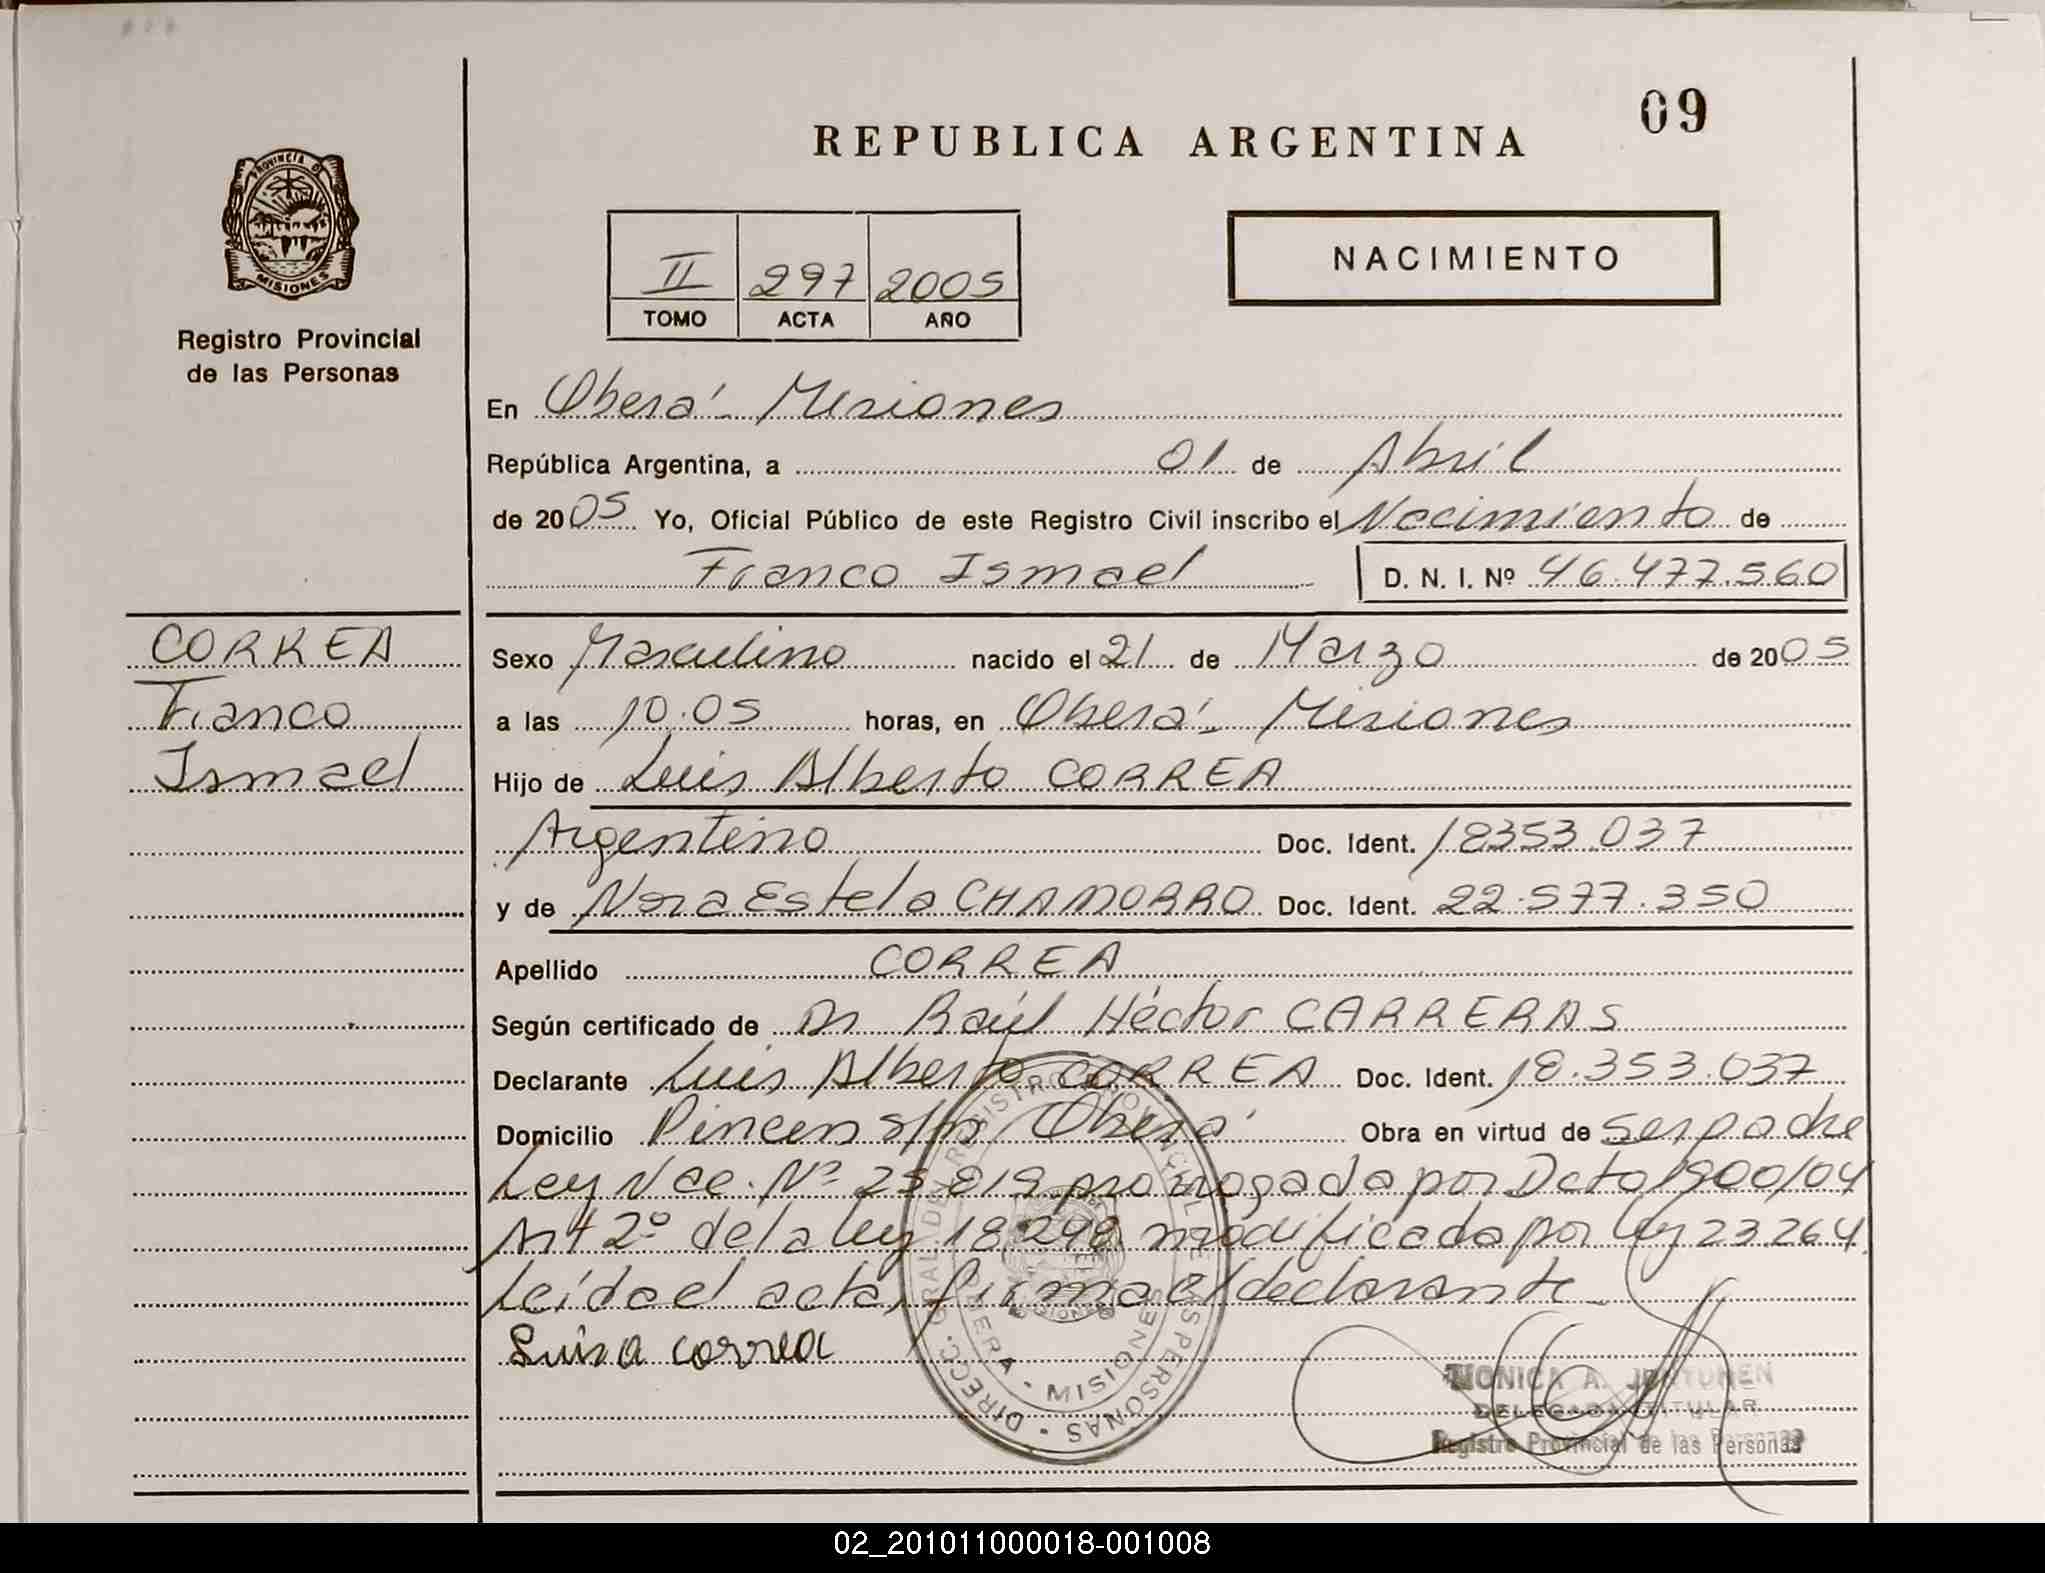 09
REPUBLICA ARGENTINA
PROVINCIA DE
MISIONES
Registro Provincial
de las Personas
NACIMIENTO
II 297 2005
TOMO ACTA AÑO
En Oberá - Misiones
República Argentina, a 01 de Abril
de 2005 Yo, Oficial Público de este Registro Civil inscribo el Nacimiento de
Franco Ismael D. N. I. Nº 46.477.560
CORREA
Franco
Ismael
Sexo Masculino nacido el 21 de Marzo de 2005
a las 10.05 horas, en Oberá - Misiones
Hijo de Luis Alberto CORREA
Argentino Doc. Ident. 18353.037
y de Nora Estela CHAMORRO Doc. Ident. 22.577.350
Apellido CORREA
Según certificado de Dr Raúl Héctor CARRERAS
Declarante Luis Alberto CORREA Doc. Ident. 18.353.037
Domicilio Pincen s/n Oberá Obra en virtud de ser padre
Ley Nac. Nº 25.819 prorrogada por Dcto 1900/04
Art 2º de la ley 18.248 modificada por ley 23264
Leída el acta, firma el declarante
Luis A correa
MONICA A.
DELEGADA TITULAR
Registro Provincial de las Personas
DIRECC. GRAL DEL REGISTRO PROVINCIAL DE LAS PERSONAS
OBERA - MISIONES
02_201011000018-001008